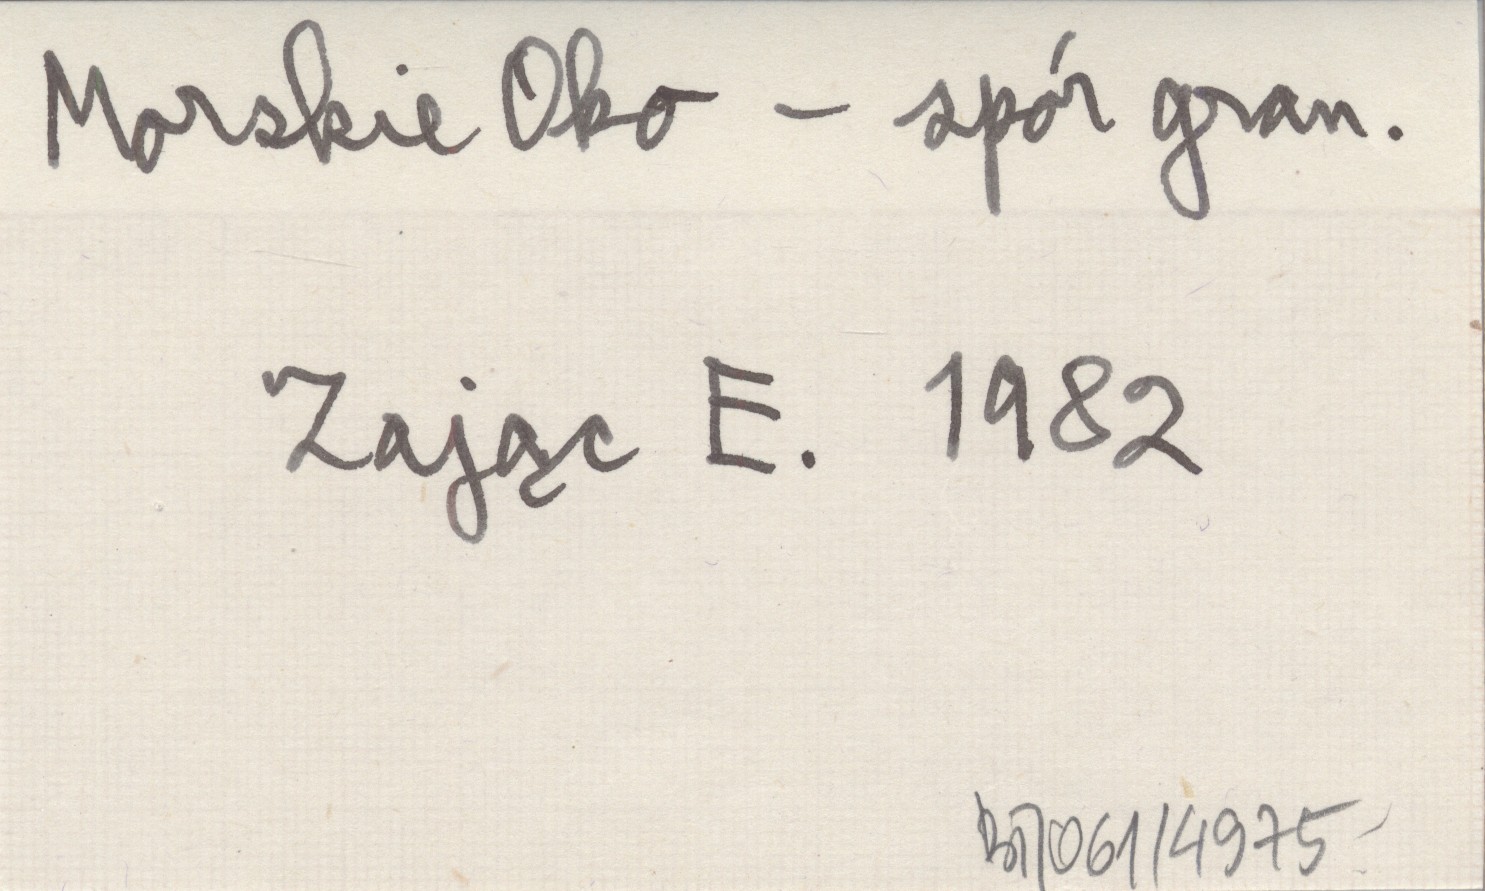 Morskie Oko - spór gran.
Zając E. 1982
061/4975